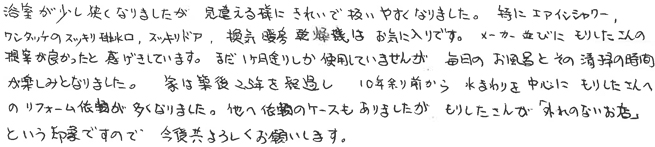 浴室が少し狭くなりましたが 見違える様に きれいで 扱いやすくなりました。 特に エアインシャワー,
ワンタッチのスッキリ排水口, スッキリドア, 換気暖房乾燥機は お気に入りです。 メーカー並びに もりしたさんの
提案が良かったと 感謝しています。 まだ1ヶ月足らずしか使用していませんが 毎日の お風呂と その 清掃の時間
が楽しみとなりました。 家は築後25年を経過し 10年余り前から 水まわりを中心に もりしたさんへ
の リフォーム依頼が 多くなりました。 他へ依頼のケースもありましたが もりしたさんが 「外れのないお店」
という印象ですので 今後共よろしくお願いします。